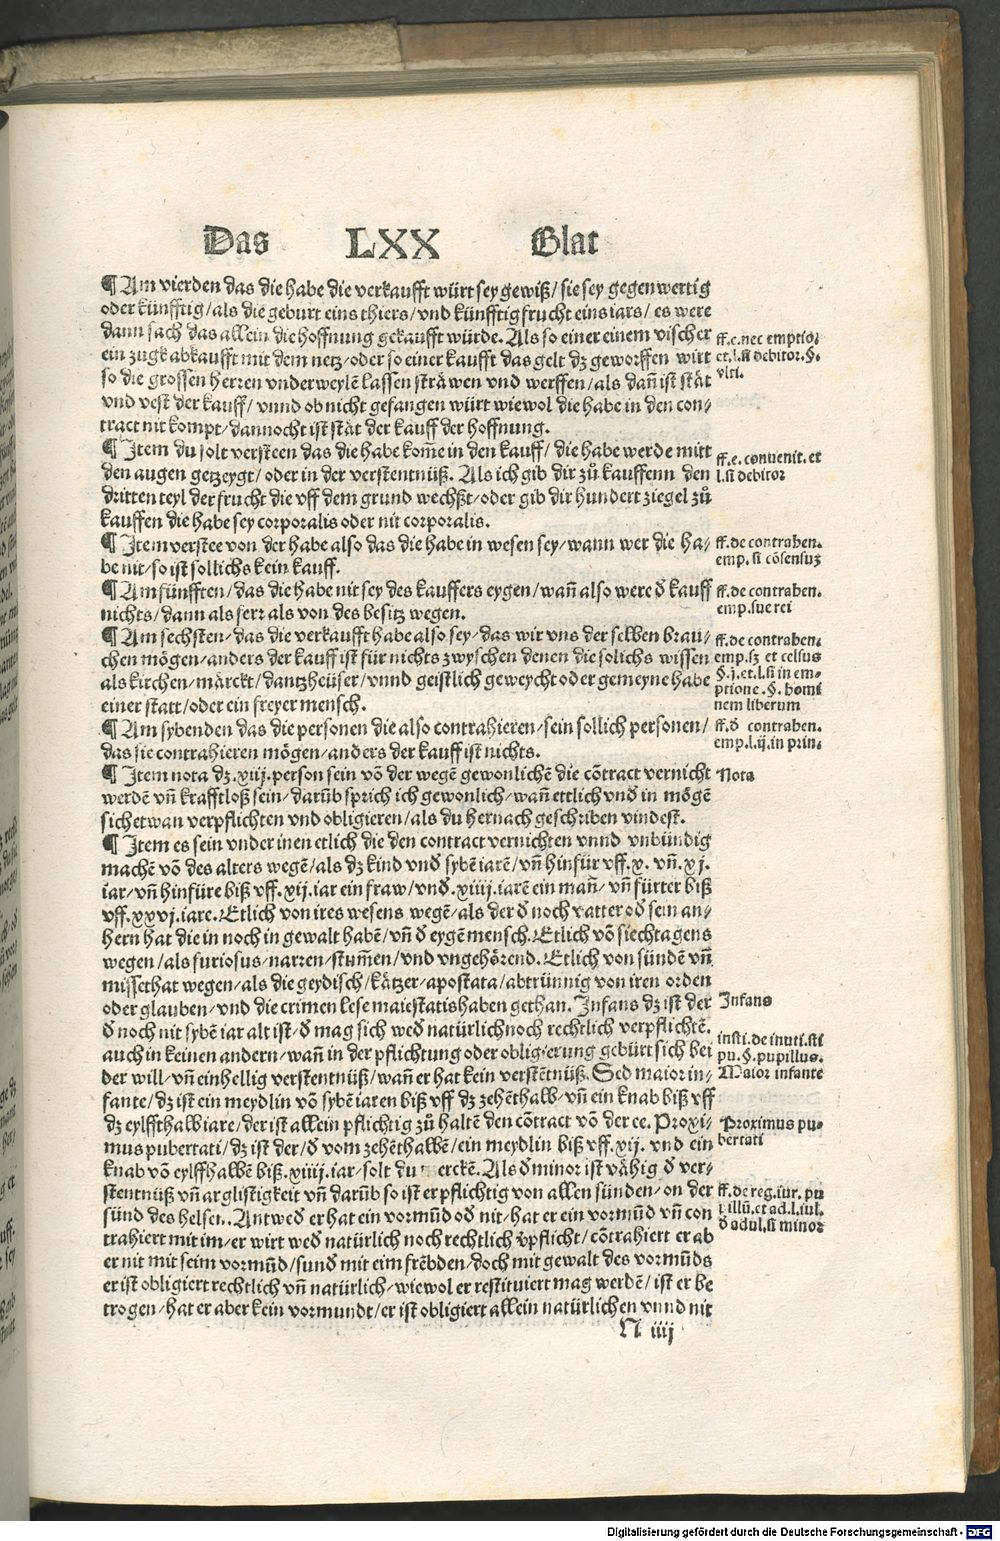 Das LXX Blat
¶ Am vierden das die habe die verkaufft würt sey gewiß/ sie sey gegenwertig
oder künfftig/ als die geburt eins thiers/ vnd künfftig frucht eins iars/ es were
dann sach das allein die hoffnung gekaufft würde. Als so einer einem vischer
ein zugk abkaufft mit dem netz/ oder so einer kaufft das gelt dz geworffen wirt
so die grossen herren vnderweylē lassen sträwen vnd werffen/ als dañ ist stät
vnd vest der kauff/ vnnd ob nicht gefangen würt wiewol die habe in den con⸗
tract nit kompt/ dannocht ist stät der kauff der hoffnung.
ff. e. nec emptio.
et. l. si debitor. §.
vlti.
¶ Item du solt versteen das die habe kom̄e in den kauff/ die habe werde mitt
den augen getzeygt/ oder in der verstentnüß. Als ich gib dir zů kauffenn den
dritten teyl der frucht die vff dem grund wechßt/ oder gib dir hundert ziegel zů
kauffen die habe sey corporalis oder nit corporalis.
ff. e. conuenit. et
l. si debitor
¶ Item verstee von der habe also das die habe in wesen sey/ wann wer die ha⸗
be nit/ so ist sollichs kein kauff.
ff. de contrahen.
emp. si cōsensuz
¶ Am fünfften/ das die habe nit sey des kauffers eygen/ wañ also were d̄ kauff
nichts/ dann als ferr als von des besitz wegen.
ff. de contrahen.
emp. sue rei
¶ Am sechsten/ das die verkaufft habe also sey/ das wir vns der selben brau⸗
chen mögen/ anders der kauff ist für nichts zwyschen denen die solichs wissen
als kirchen/ märckt/ dantzheüser/ vnnd geistlich geweycht oder gemeyne habe
einer statt/ oder ein freyer mensch.
ff. de contrahen.
emp. sz et celsus
§. j. et. l. si in em⸗
ptione. §. homi
nem liberum
¶ Am sybenden das die personen die also contrahieren/ sein sollich personen/
das sie contrahieren mögen/ anders der kauff ist nichts.
ff. d̄ contrahen.
emp. l. ij. in prin.
¶ Item nota dz .xiij. person sein vō der wegē gewonlichē die cōtract vernicht
werdē vn̄ krafftloß sein/ darūb sprich ich gewonlich/ wañ ettlich vnd̄ in mögē
sich etwan verpflichten vnd obligieren/ als du hernach geschriben vindest.
Nota
¶ Item es sein vnder inen etlich die den contract vernichten vnnd vnbündig
machē vō des alters wegē/ als dz kind vnd̄ sybē iarē/ vn̄ hinfür vff. x. vn̄. xj.
iar/ vn̄ hinfüre biß vff. xij. iar ein fraw/ vnd̄ .xiiij. iarē ein mañ/ vn̄ fürter biß
vff. xxvj. iare. Etlich von ires wesens wegē/ als der d̄ noch vatter od̄ sein an⸗
hern hat die in noch in gewalt habē/ vn̄ d̄ eygē mensch. Etlich vō siechtagens
wegen/ als furiosus/ narren/ stum̄en/ vnd vngehörend. Etlich von sündē vn̄
missethat wegen/ als die geydisch/ kätzer/ apostata/ abtrünnig von iren orden
oder glauben/ vnd die crimen lese maiestatis haben gethan. Infans dz ist der
d̄ noch nit sybē iar alt ist/ d̄ mag sich wed̄ natürlich noch rechtlich verpflichtē.
auch in keinen andern/ wañ in der pflichtung oder obligierung gebürt sich bei
der will/ vn̄ einhellig verstentnüß/ wañ er hat kein verstētnüß. Sed maior in⸗
fante/ dz ist ein meydlin vō sybē iaren biß vff dz zehēthalb/ vn̄ ein knab biß vff
dz eylffthalb iare/ der ist allein pflichtig zů haltē den cōtract vō der ee. Proxi⸗
mus pubertati/ dz ist der/ d̄ vom zehēthalbē/ ein meydlin biß vff. xij. vnd ein
knab vō eylffhalbē biß. xiiij. iar/ solt du erckē. Als d̄ minor ist vähig d̄ ver⸗
stentnüß vn̄ arglistigkeit vn̄ darūb so ist er pflichtig von allen sünden/ on der
sünd des helsen. Antwed̄ er hat ein vormūd od̄ nit/ hat er ein vormūd vn̄ con
trahiert mit im/ er wirt wed̄ natürlich noch rechtlich v̄pflicht/ cōtrahiert er ab
er nit mit seim vormūd/ sund̄ mit eim frēbden/ doch mit gewalt des vormūds
er ist obligiert rechtlich vn̄ natürlich/ wiewol er restituiert mag werdē/ ist er be
trogen/ hat er aber kein vormundt/ er ist obligiert allein natürlichen vnnd nit
Infans
insti. de inuti. sti
pu. §. pupillus.
Maior infante
Proximus pu⸗
bertati
ff. de reg. iur. pu
illū. et ad. l. iul.
d̄ adul. si minor
N iiij
Digitalisierung gefördert durch die Deutsche Forschungsgemeinschaft - DFG